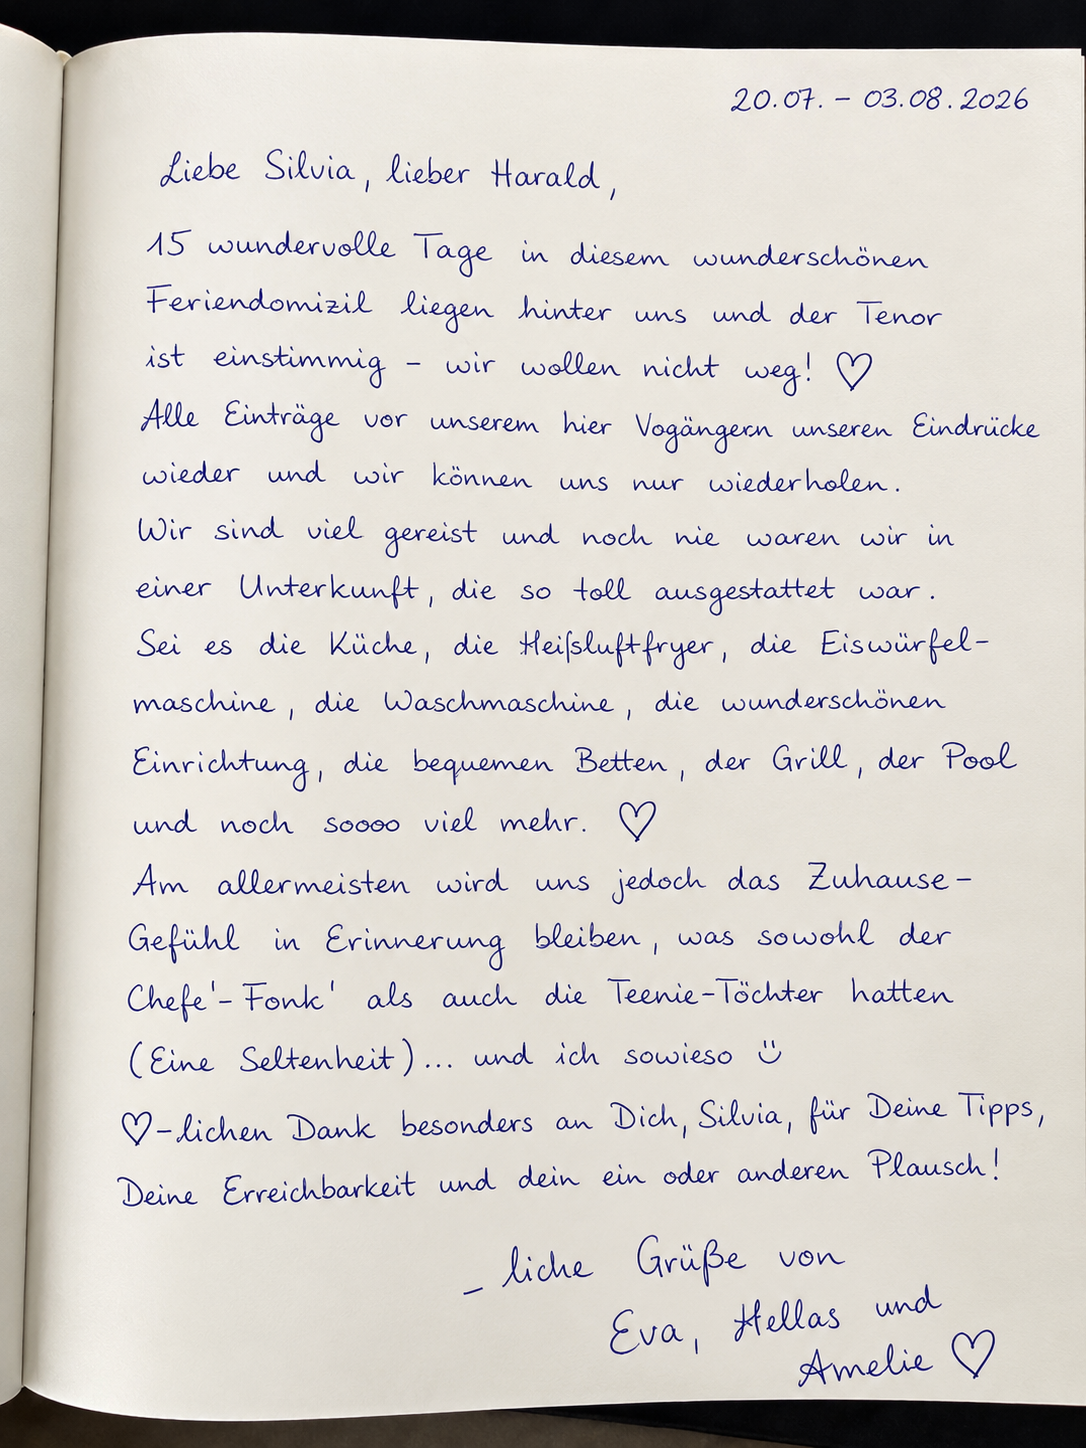 20.07. – 03.08.2026
Liebe Silvia, lieber Harald,
15 wundervolle Tage in diesem wunderschönen
Feriendomizil liegen hinter uns und der Tenor
ist einstimmig – wir wollen nicht weg! ♡
Alle Einträge vor unserem hier Vogängern unseren Eindrücke
wieder und wir können uns nur wiederholen.
Wir sind viel gereist und noch nie waren wir in
einer Unterkunft, die so toll ausgestattet war.
Sei es die Küche, die Heißluftfryer, die Eiswürfel-
maschine, die Waschmaschine, die wunderschönen
Einrichtung, die bequemen Betten, der Grill, der Pool
und noch soooo viel mehr. ♡
Am allermeisten wird uns jedoch das Zuhause-
Gefühl in Erinnerung bleiben, was sowohl der
Chefe'-Fonk' als auch die Teenie-Töchter hatten
(Eine Seltenheit)... und ich sowieso ü
♡-lichen Dank besonders an Dich, Silvia, für Deine Tipps,
Deine Erreichbarkeit und dein ein oder anderen Plausch!
_ liche Grüße von
Eva, Hellas und
Amelie ♡